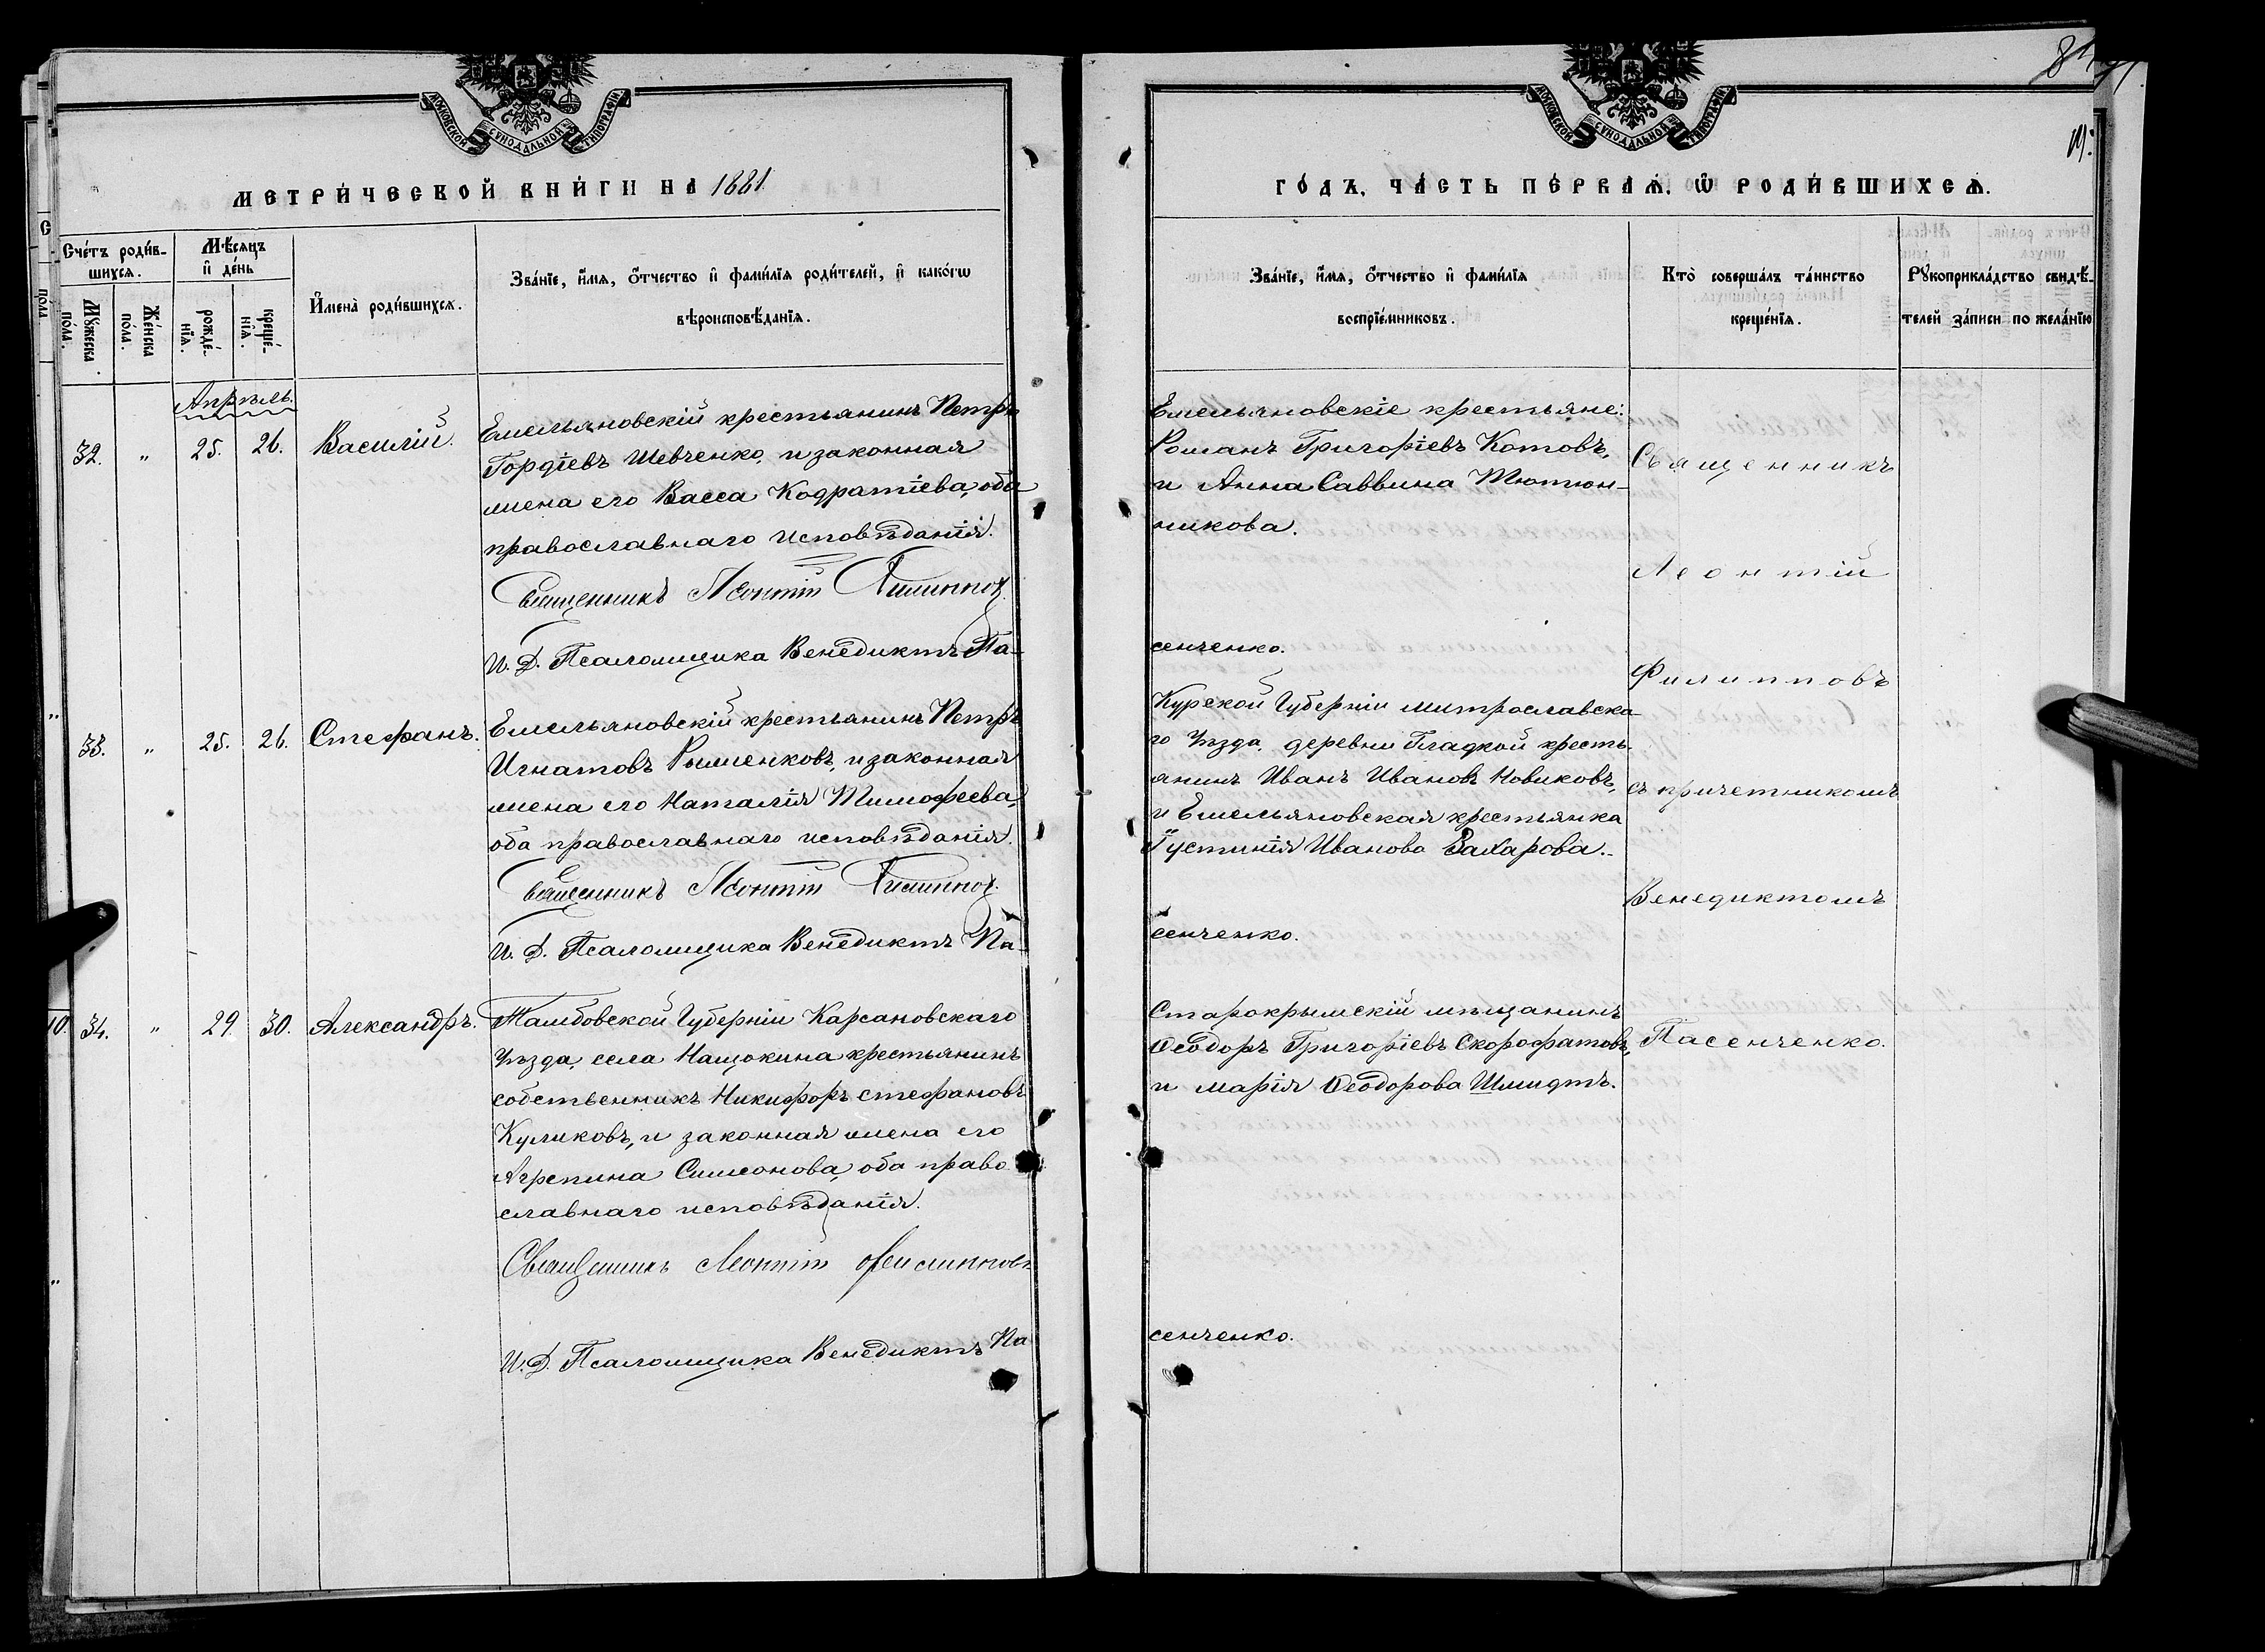 МОСКОВСКОЙ СѴНОДАЛЬНОЙ ТИПОГРАФІИ
МЕТРИ́ЧЕСКОЙ КНИ́ГИ НА 1881
Сче́тъ роди́в-
шихсѧ.
Мѣ́сѧцъ
и҆ де́нь
Мꙋ́жеска
по́ла.
Же́нска
по́ла.
рожде́-
нїѧ.
креще́-
нїѧ.
И҆мена̀ роди́вшихсѧ.
Зва́нїе, и҆́мѧ, ѻ҆́тчество и҆ фами́лїѧ роди́телей, и҆ како́гѡ
вѣроисповѣ́данїѧ.
Апрѣль.
32. „ 25. 26. Василій.
Емельяновскій крестьянинъ Петръ
Гордіевъ Шевченко, и законная
жена его Васса Кодратіева, оба
православнаго исповѣданія.
Священникъ Леонтій Филиппов
И. Д. Псаломщика Венедиктъ Па-
33. „ 25. 26. Стефанъ.
Емельяновскій крестьянинъ Петръ
Игнатовъ Рыженковъ, и законная
жена его Наталія Тимофеева,
оба православнаго исповѣданія.
Священникъ Леонтій Филиппов
И. Д. Псаломщика Венедиктъ Па-
34. „ 29. 30. Александръ.
Тамбовской Губерніи Карсановскаго
Уѣзда, села Нащокина крестьянинъ
собственникъ Никифоръ Стефановъ
Куликовъ, и законная жена его
Агрепина Симеонова, оба право
славнаго исповѣданія.
Священникъ Леонтій Филипповъ
И. Д. Псаломщика Венедиктъ Па
МОСКОВСКОЙ СѴНОДАЛЬНОЙ ТИПОГРАФІИ
ГО́ДЪ, ЧА́СТЬ ПЕ́РВАѦ, Ѡ҆ РОДИ́ВШИХСѦ.
Зва́нїе, и҆́мѧ, ѻ҆́тчество и҆ фами́лїѧ
воспрїе́мниковъ.
Кто̀ соверша́лъ та́инство
креще́нїѧ.
Рꙋкоприкла́дство свидѣ́-
телей за́писи по жела́нїю
Емельяновскіе крестьяне:
Романъ Григоріевъ Котовъ,
и Анна Саввина Тютюн-
никова.
сенченко.
Курской Губерніи Митрославска-
го Уѣзда, деревни Гладкой кресть-
янинъ Иванъ Ивановъ Новиковъ,
и Емельяновская крестьянка
Іустинія Иванова Захарова.
сенченко.
Старокрымскій мѣщанинъ
Ѳеодоръ Григоріевъ Скорофатовъ,
и Марія Ѳеодорова Шмидтъ.
сенченко.
Священникъ
Леонтій
Филипповъ
съ причетникомъ
Венедиктомъ
Пасенченко.